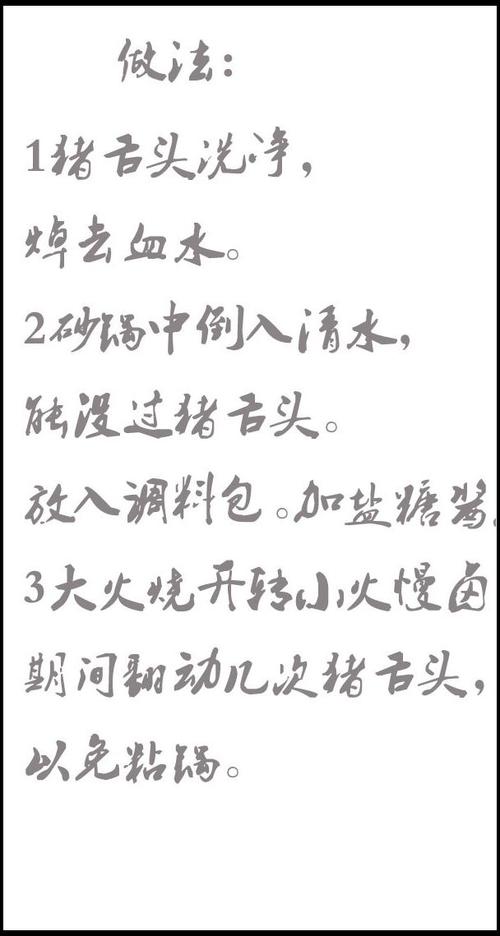 做法:
1猪舌头洗净,
焯去血水。
2砂锅中倒入清水,
能没过猪舌头。
放入调料包。加盐糖酱
3大火烧开转小火慢卤
期间翻动几次猪舌头,
以免粘锅。